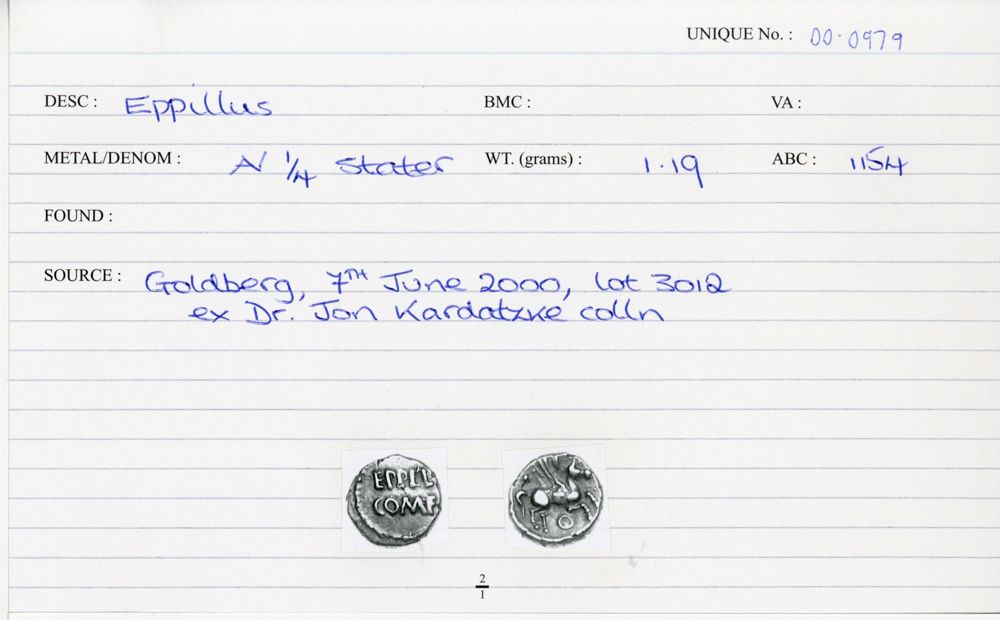 UNIQUE No. : 00.0979
DESC : Eppillus BMC : VA :
METAL/DENOM : AV 1/4 Stater WT. (grams) : 1.19 ABC : 1154
FOUND :
SOURCE : Goldberg, 7TH June 2000, lot 3012
ex Dr. Jon Kardatzke colln
EPPIL
COMF
2
1